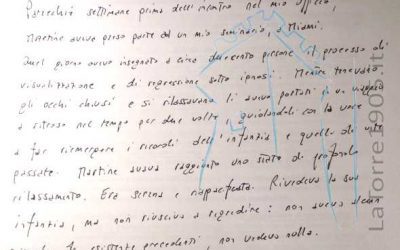 Parecchie settimane prima dell'incontro nel mio ufficio,
Martine aveva preso parte ad un mio seminario, a Miami.
Quel giorno avevo insegnato a circa duecento persone il processo di
visualizzazione e di regressione sotto ipnosi. Mentre tenevano
gli occhi chiusi e si rilassavano li avevo portati in un viaggio
a ritroso nel tempo per due volte, guidandoli con la voce
a far riemergere i ricordi dell'infanzia e quelli di vite
passate. Martine aveva raggiunto uno stato di profondo
rilassamento. Era serena e rappacificata. Rivedeva la sua
infanzia, ma non riusciva a regredire: non aveva alcun
esistenze precedenti, non vedeva nulla.
LaTorre1905.it